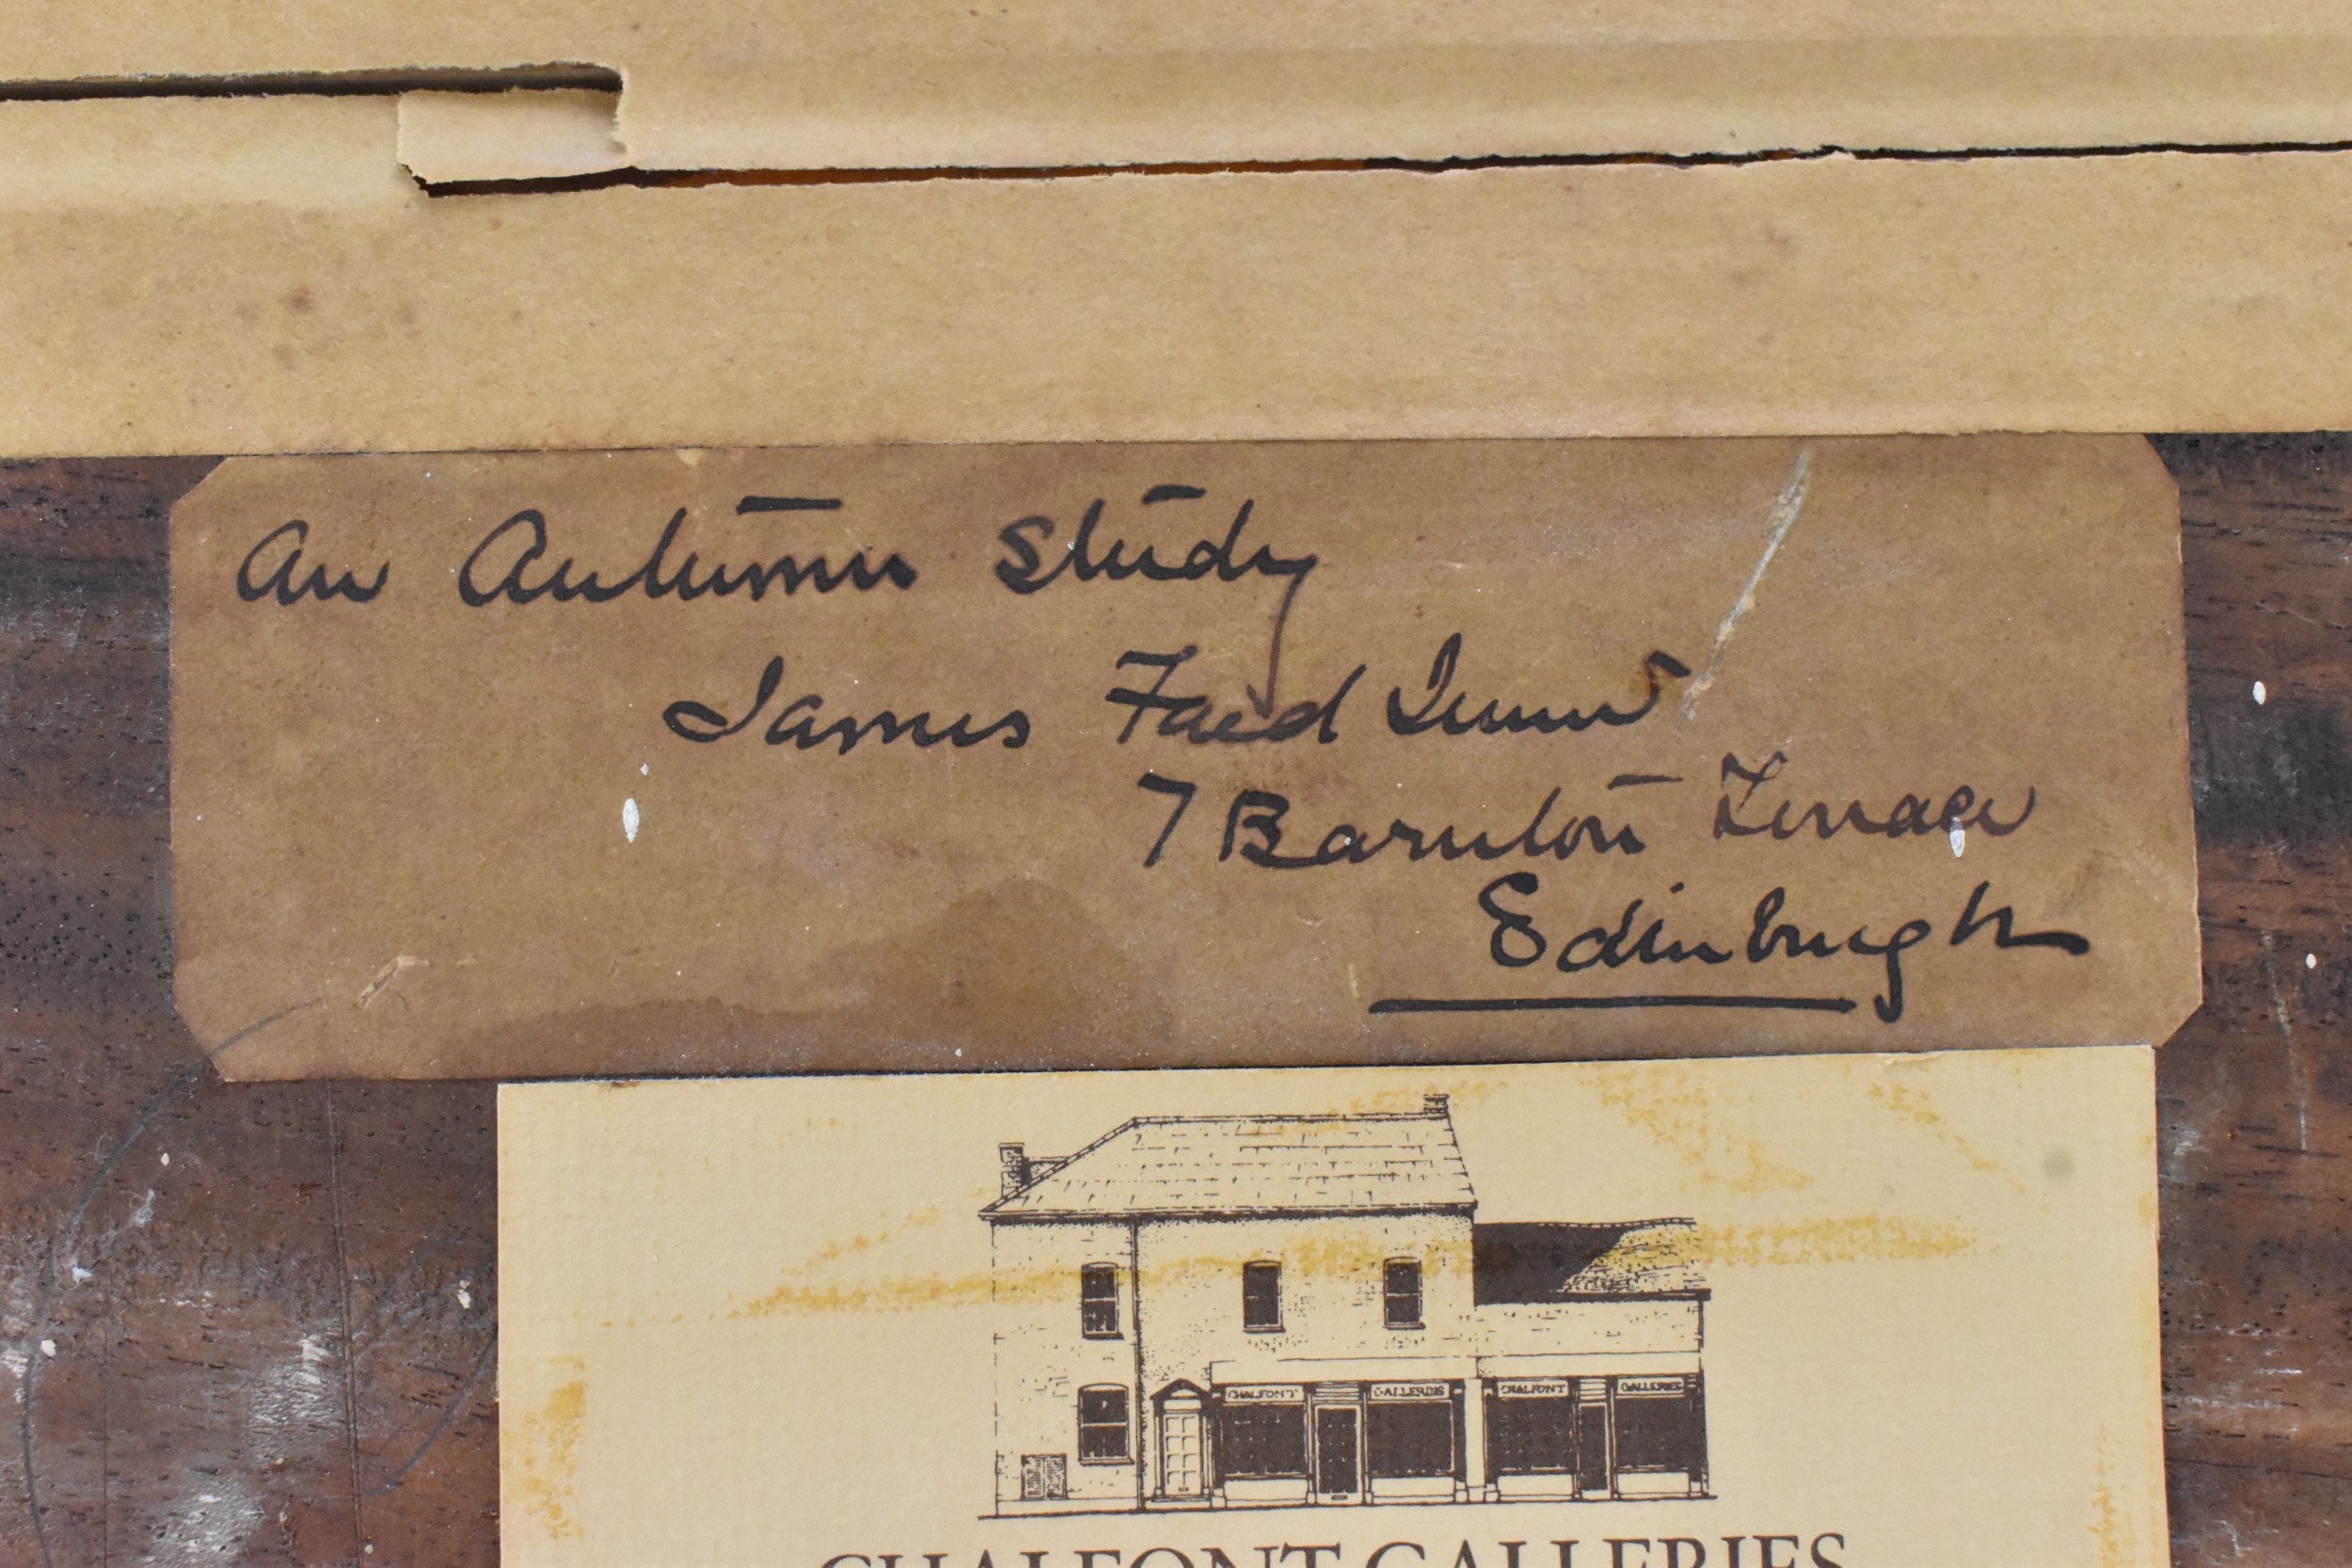 An Autumn Study
James Faed Junr
7 Barnton Terrace
Edinburgh
CHALFONT GALLERIES CHALFONT GALLERIES
CHALFONT GALLERIES